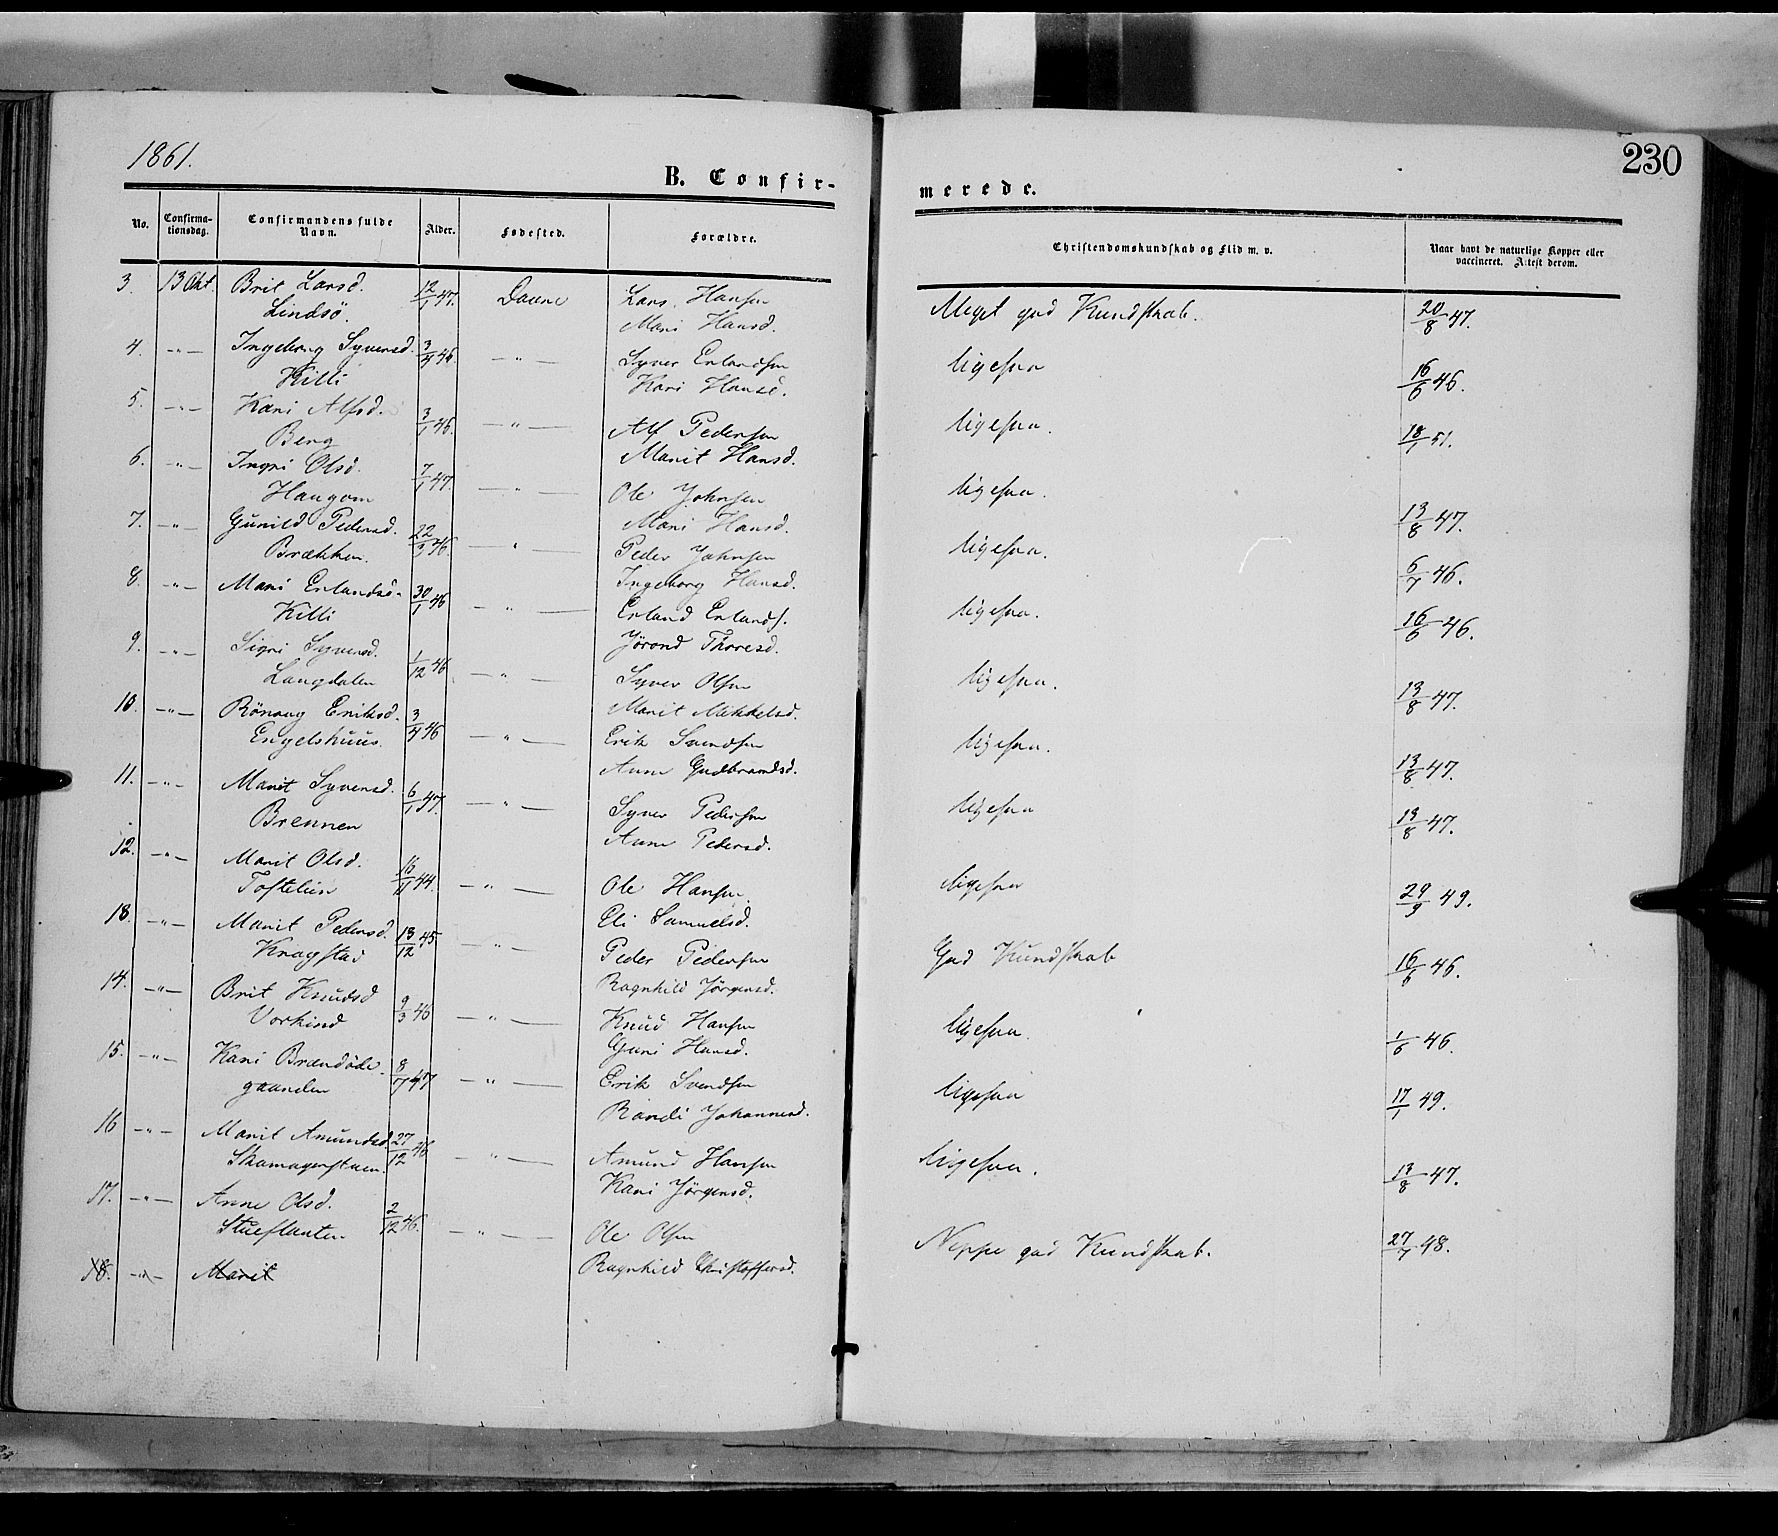 1861.
B. Confir-
merede.
230
No.
Confirma-
tionsdag.
Confirmandens fulde
Navn.
Alder.
Fødested.
Forældre.
Christendomskundskab og Flid m. v.
Naar havt de naturlige Kopper eller
vaccineret. Attest derom.
3. 13 Okt. Brit Larsd. 12/1 47. Dovre Lars Hansen Meget god Kundskab. 20/8 47.
Lindsö. Mari Hansd.
4. -"- Ingeborg Syversd. 3/4 46. -"- Syver Erlandsen ligesaa 16/6 46.
Killi Kari Hansd.
5. -"- Kari Alfsd. 3/1 46. -"- Alf Pedersen ligesaa. 18/1 51.
Berg Marit Hansd.
6. -"- Ingri Olsd. 7/1 47. -"- Ole Johnsen ligesaa. 13/8 47.
Haugom Mari Hansd.
7. -"- Gunild Pedersd. 22/3 46. -"- Peder Johnsen ligesaa. 6/7 46.
Brækken. Ingeborg Hansd.
8. -"- Mari Erlandsd. 30/1 46 -"- Erland Erlands. ligesaa. 16/6 46.
Killi Jörond Thoresd.
9. -"- Sigri Syversd. 1/12 46 -"- Syver Olsen ligesaa. 13/8 47.
Langdalen Marit Mikkelsd.
10. -"- Rönaug Eriksd. 3/4 46 -"- Erik Svendsen ligesaa. 13/8 47.
Engelshuus. Anne Gudbrandsd.
11. -"- Marit Syversd. 6/1 47. -"- Syver Pedersen ligesaa 13/8 47.
Brennen Anne Pedersd.
12. -"- Marit Olsd. 16/11 44. -"- Ole Hansen. ligesaa 29/9 49.
Toftelien Eli Samuelsd.
13. -"- Marit Pedersd. 13/12 45 -"- Peder Pedersen God Kundskab 16/6 46.
Kragstad Ragnhild Jörgensd.
14. -"- Brit Knudsd 9/3 46 -"- Knud Hansen ligesaa. 1/6 46.
Vorkind Guri Hansd.
15. -"- Kari Brændöde- 8/7 47 -"- Erik Svendsen ligesaa 17/1 49.
gaarden Randi Johannesd.
16 -"- Marit Amundsd. 27/12 46 -"- Amund Hansen ligesaa. 13/8 47.
Skamagerstuen. Kari Jörgensd.
17. -"- Anne Olsd. 2/12 46. -"- Ole Olsen Neppe god Kundskab. 27/7 48.
Stueflauten Ragnhild Christoffersd.
18. -"- Marit